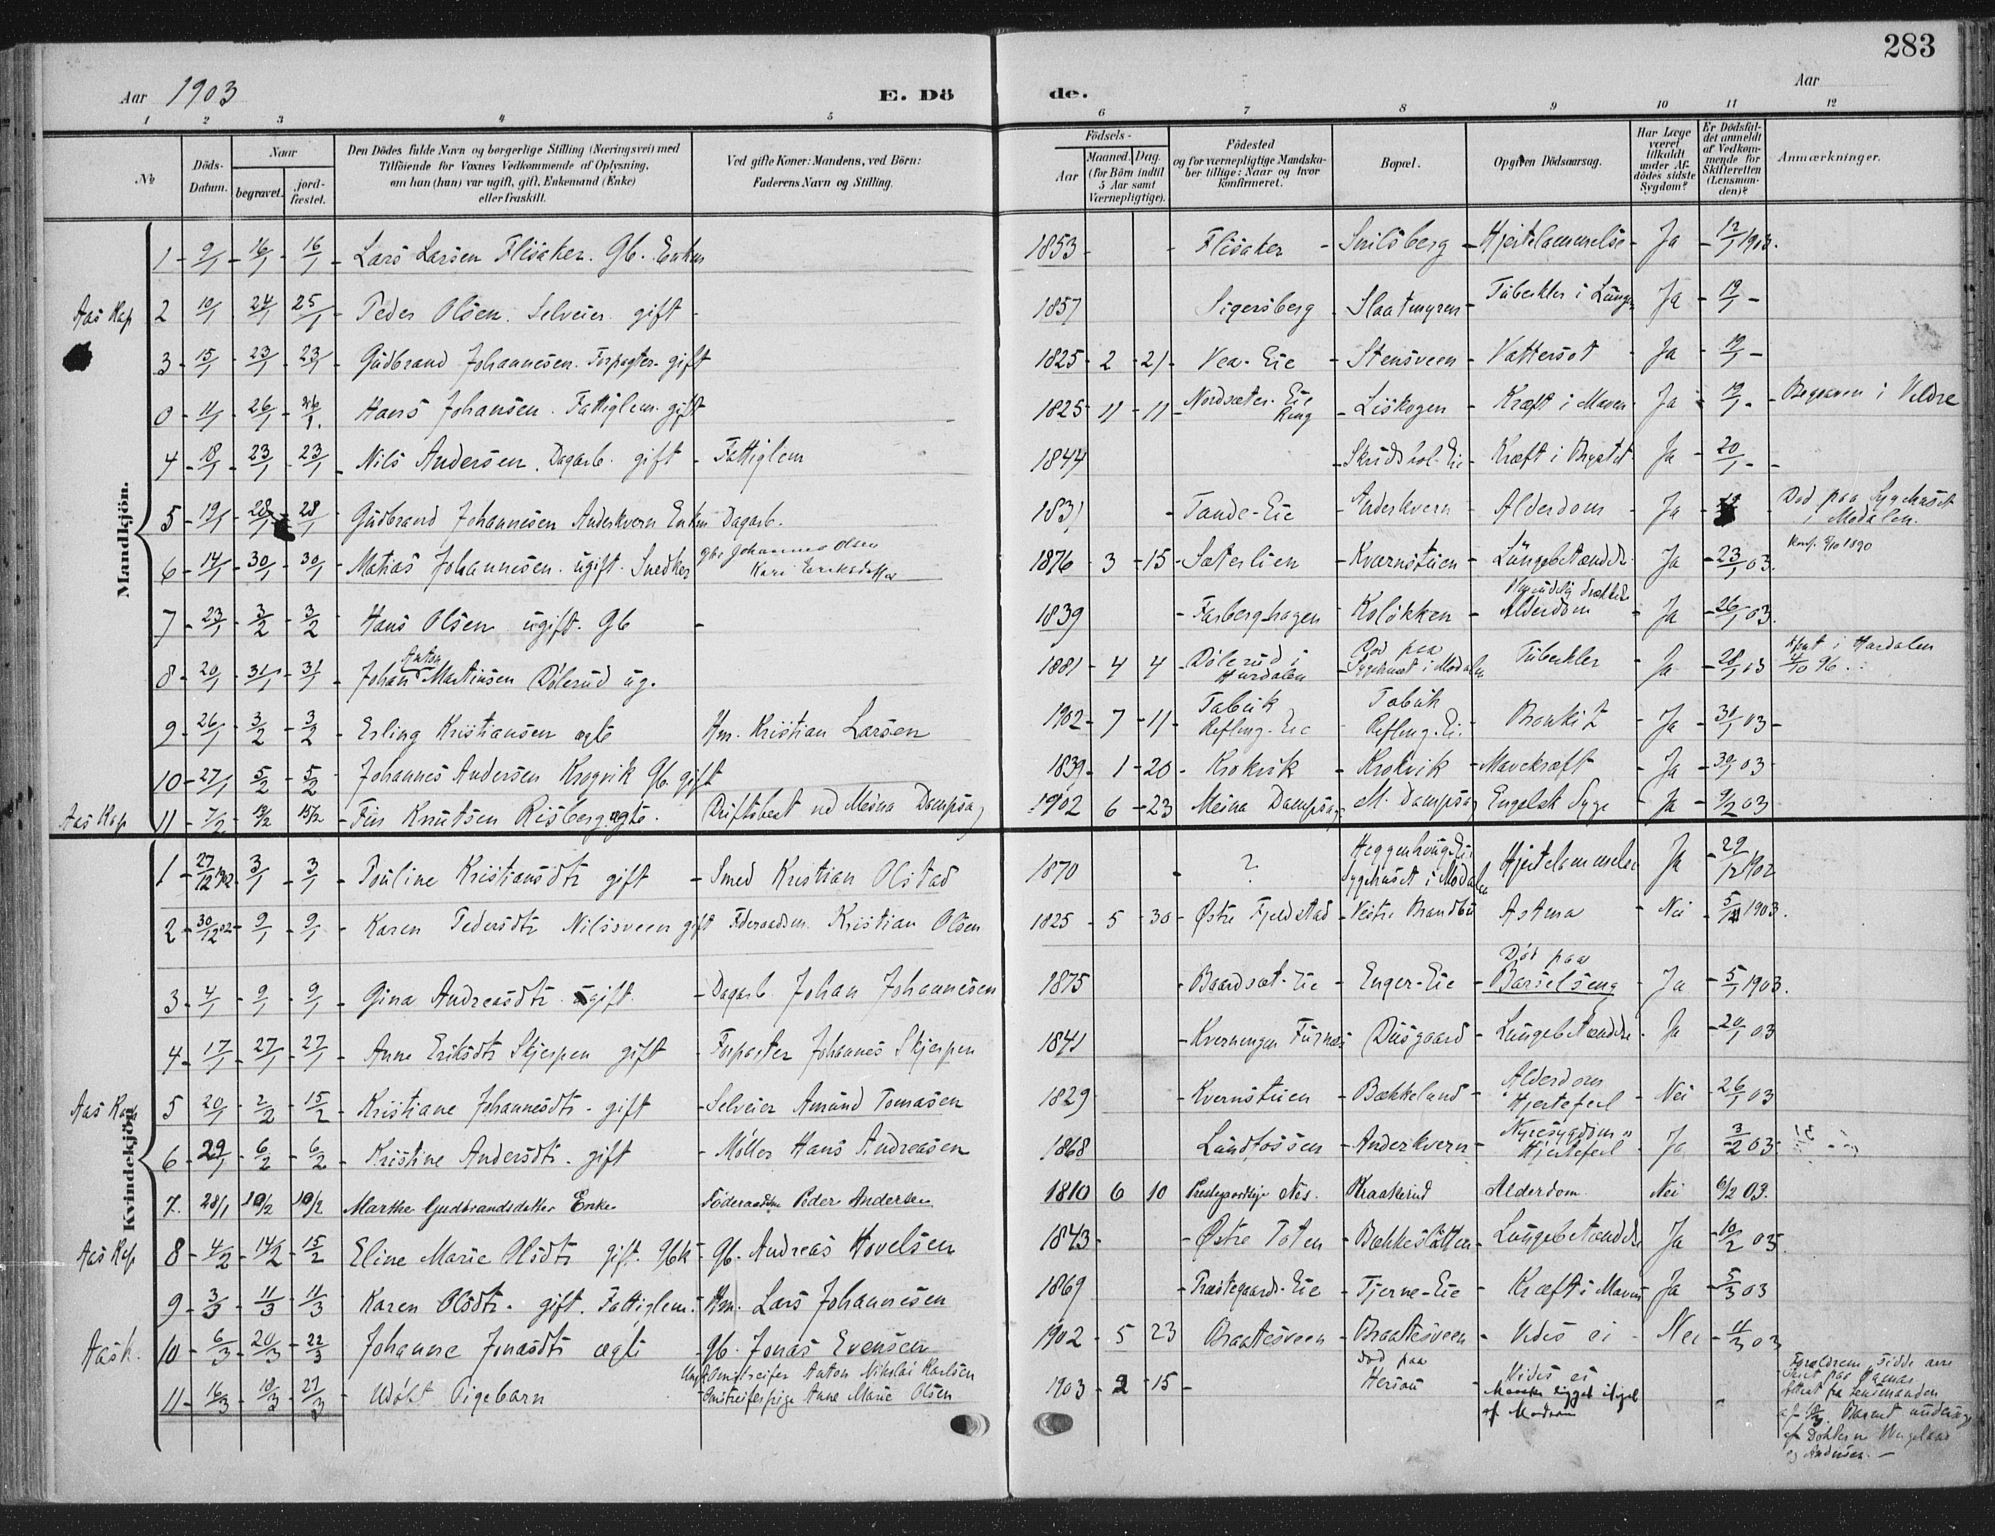 283
Aar 1903
E. Dö de.
Aar
1 2 3 4 5 6 7 8 9 10 11 12
No
Döds-Datum.
Naar
begravet.
jordfæstet.
Den Dödes fulde Navn og borgerlige Stilling (Næringsvei) med
Tilföiende for Voxnes Vedkommende af Oplysning,
om han (hun) var ugift, gift, Enkemand (Enke)
eller fraskilt.
Ved gifte Koner: Mandens, ved Börn:
Faderens Navn og Stilling.
Födsels-
Aar
Maaned. Dag.
(for Börn indtil 5 Aar samt Værnepligtige).
Födested
og for værnepligtige Mandskaber tillige: Naar og hvor konfirmeret.
Bopæl.
Opgiven Dödsaarsag.
Har Læge været tilkaldt under Afdödes sidste Sygdom?
Er Dödsfaldet anmeldt af Vedkommende for Skifteretten (Lensmanden)?
Anmærkninger.
Mandkjön.
1 9/1 16/1 16/1 Lars Larsen Flisaker. Gb. Enkem 1853 Flisaker Smilsberg Hjertelammelse Ja 12/1 1903.
Aas Kap 2 10/1 24/1 25/1 Peder Olsen. Selveier. gift 1857 Sigersberg Slaatmyren Tuberkler i Lunge Ja 19/1
3 15/1 23/1 23/1 Gudbrand Johannesen. Forpagter. gift 1825 2 21 Vea-Eie Stensveen Vattersot Ja 19/1
0 11/1 26/1 26/1 Hans Johansen. Fattiglem. gift 1825 11 11 Nordsæter-Eie Ring Liskogen Kræft i Maven Ja 19/1 Begraven i Veldre
4 18/1 23/1 23/1 Nils Andersen. Dagarb. gift Fattiglem 1844 Skredshol-Eie Kræft i Brystet Ja 20/1
5 19/1 28/1 28/1 Gudbrand Johannesen Anderkvern Enkm Dagarb. 1831 Tande-Eie Anderkvern Alderdom Ja Død paa Sygehuset i Modalen.
6 14/1 30/1 30/1 Matias Johannesen. ugift. Snedker Gbr. Johannes Olsen Kari Eriksdatter 1876 3 15 Sæterlien Kvarnstuen Lungebetændelse Ja 23/1 03. Konf. 5/10 1890
7 23/1 3/2 3/2 Hans Olsen ugift. Gb 1839 Farberghagen Koløkken Alderdom Ja 26/1 03.
8 20/1 31/1 31/1 Johan Anton Martinsen Dølerud ug. 1881 4 4 Dølerud i Hurdalen Død paa Sygehuset i Modalen Tuberkler Ja 28/1 03 i Hurdalen 4/10 96
9 26/1 3/2 3/2 Erling Kristiansen ægte Hm. Kristian Larsen 1902 7 11 Tabuk Refling-Eie Tabuk Refling-Ei. Bronkit Ja 31/1 03
10 27/1 5/2 5/2 Johannes Andersen Krogvik Gb. gift 1839 1 20 Krokvik Krokvik Mavekræft Ja 30/1 03
Aas Kap 11 7/2 13/2 15/2 Fin Knutsen Risberg ægte. Driftsbest ved Mesna Dampsag 1902 6 23 Mesna Dampsag M. Dampsag Engelsk Syge Ja 9/2 03
Kvindekjön
1 27/12 1902 3/1 3/1 Pouline Kristiansdtr gift Smed Kristian Olstad 1870 ? Heggenhougen-Ei Sygehuset i Modalen Hjertelammelse Ja 29/12 1902
2 30/12 02 9/1 9/1 Karen Pedersdtr Nilssveen gift Føderaadsm. Kristian Olsen 1825 5 30 Østre Fjeldstad Vestre Brandbu Astma Nei 5/1 1903.
3 4/1 9/1 9/1 Gina Andreasdtr gift. Dagarb. Johan Johannesen 1875 Baardset-Eie Enger-Eie Død paa Barselseng Ja 5/1 1903.
4 17/1 27/1 27/1 Anne Eriksdtr Skjerpen gift Forpagter Johannes Skjerpen 1841 Kverningen Furnes Dusgaard Lungebetændelse Ja 20/1 03
Aas Kap 5 20/1 2/2 15/2 Kristiane Johannesdtr. gift Selveier Amund Tomasen 1829 Kvernstuen Bækkelund Alderdom Hjertefeil Nei 26/1 03
6 29/1 6/2 6/2 Kristine Andersdtr. gift Møller Hans Andreasen 1868 Lundfossen Anderkvern Nyresygdom Hjertefeil Ja 3/2 03
7. 28/1 10/2 10/2 Marthe Gudbrandsdatter Enke Føderaadsm Peder Andersen 1810 6 10 Nes. Kraakerud Alderdom Nei 6/2 03.
Aas Kap 8 4/2 14/2 15/2 Eline Marie Olsdtr gift. Gbk Gb. Andreas Hovelsen 1843 Østre Toten Bækkeslåtten Lungebetændelse Ja 10/2 03.
9 3/3 11/3 11/3 Karen Olsdtr. gift. Fattiglem. Hm. Lars Johannesen 1869 Præstegaards-Eie Tjerne-Eie Kræft i Maven Ja 5/3 03
Aas K. 10 6/3 20/3 22/3 Johanne Jonasdtr ægte Gb. Jonas Evensen 1902 5 23 Braatesveen Braatesveen Vides ei Nei 11/3 03
11 16/3 19/3 27/3 Udøbt Pigebarn Ungk. Omstreifer Anton Nikolai Karlsen Omstreiferpige Anne Marie Olsen 1903 2 15 død paa Hersou Vides ei af Modren
Forældrene sidde arresteret paa Hamar
fra Lensmanden
Barnet undersøgt
af Doktorn
og Andersen.